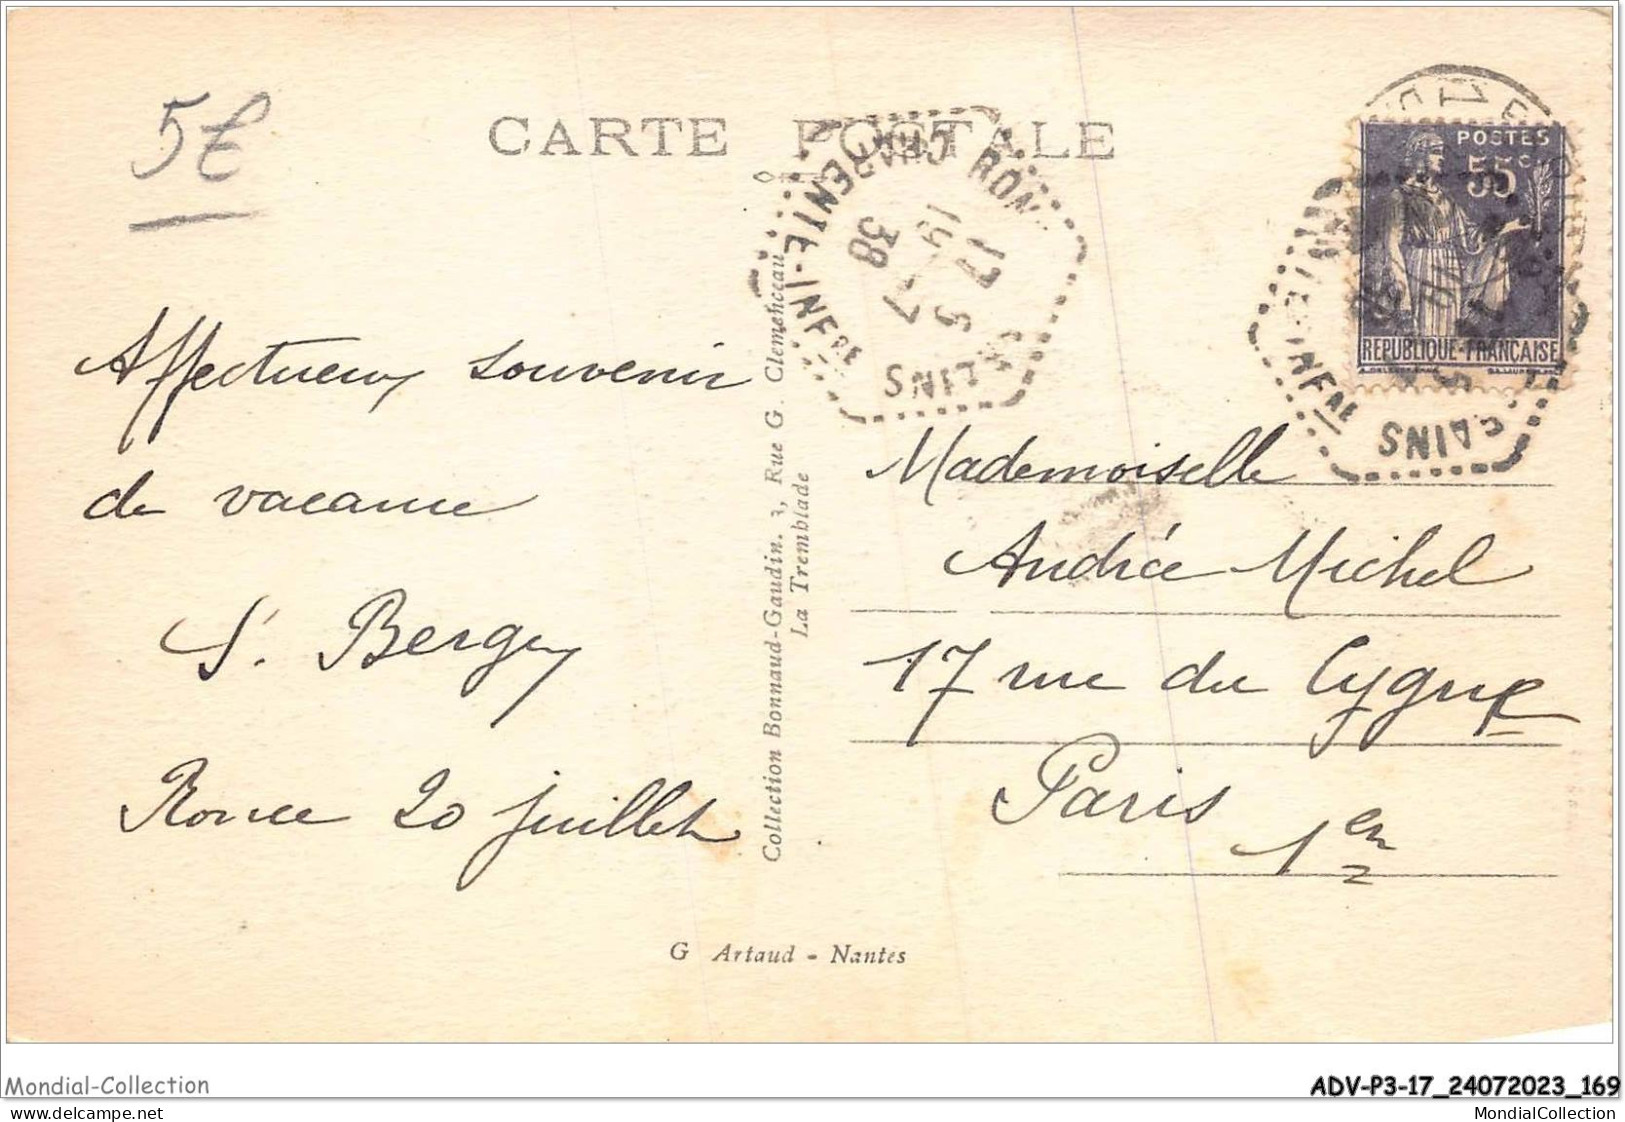 5€
CARTE POSTALE
POSTES
55c
REPUBLIQUE-FRANÇAISE
CHARENTE-INFRE
17 5
19-7
38
Affectueux souvenir
de vacance
S. Bergey
Ronce 20 juillet
Collection Bonnaud-Gaudin. 3, Rue G. Clemenceau
La Tremblade
Mademoiselle
Andrée Michel
17 rue du Cygne
Paris
1er
G Artaud - Nantes
Mondial-Collection
ADV-P3-17_24072023_169
MondialCollection
MondialCollection